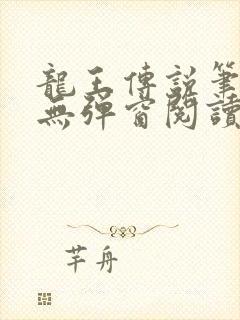 龍王傳說筆
無彈窗閱讀
芊舟